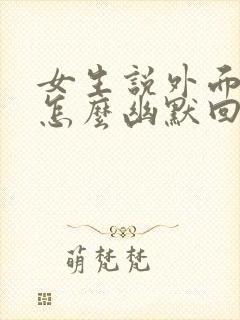 女生說外面
怎麼幽默回
萌梵梵